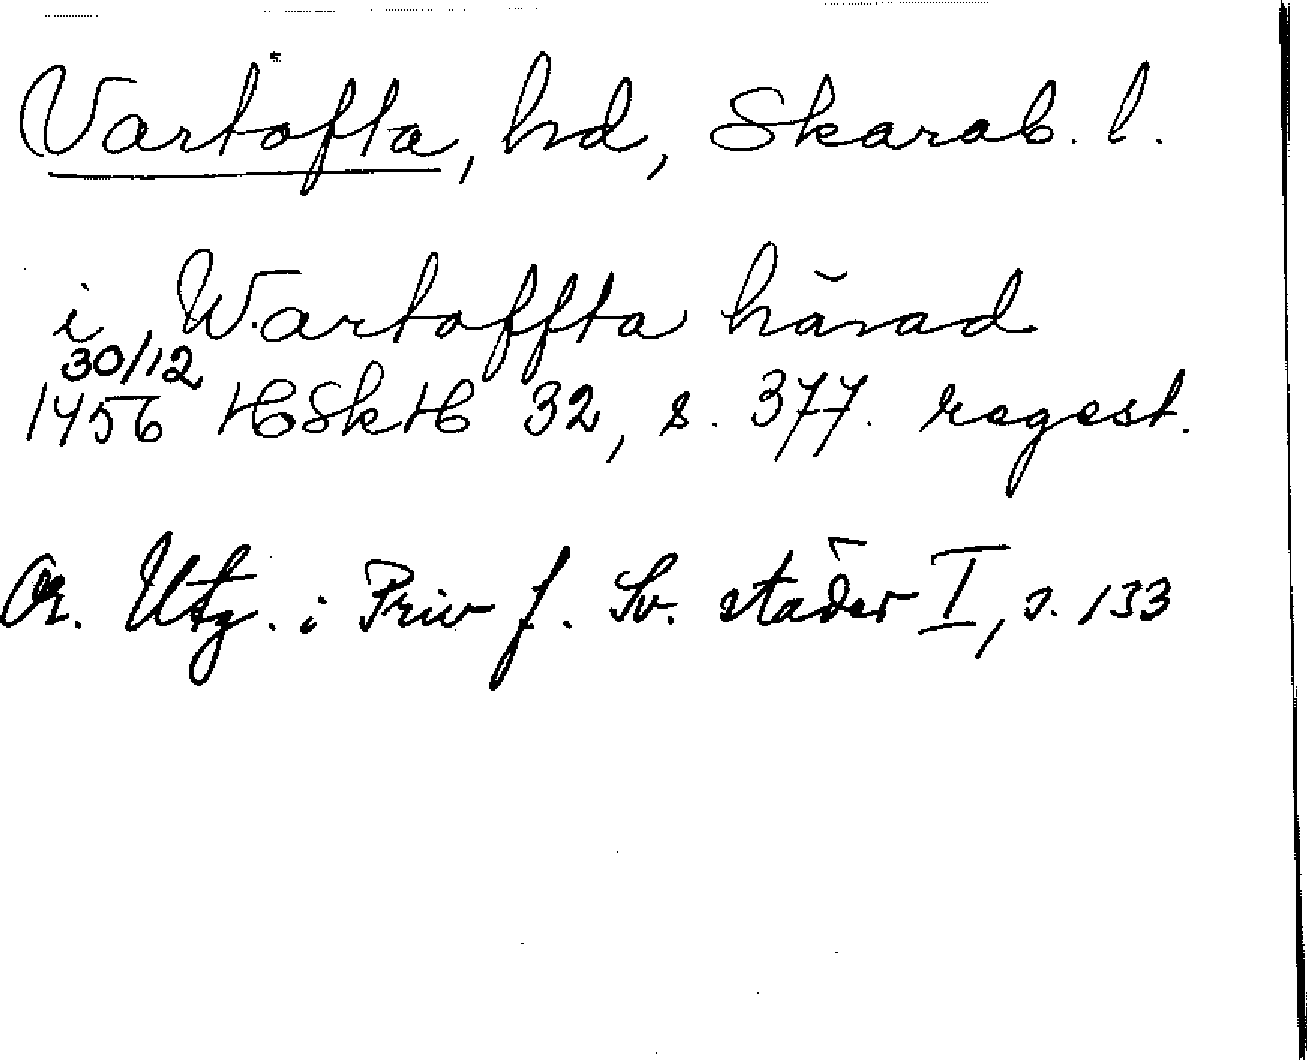 Vartofta, hd, Skarab. l.
i Wartoffta härad
30/12
1456 HSkH 32, s. 377. regest.
Or. Utg. i Priv f. Sv. städer I, s. 133